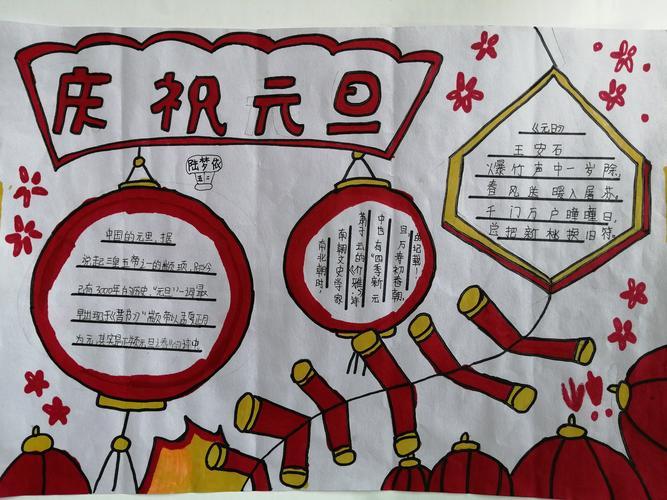 庆祝元旦
陆梦依
五二
中国的元旦，据
说起三皇五帝之一的颛顼，距今
已有3000年的历史，"元旦"一词最
早出现于《晋书》"颛帝以孟夏正月
为元，其实是正朔元旦之春"的诗中
南北朝时，
南朝文史学家
萧子云的《介雅》诗
中也有"四季新元
旦，万寿初春朝"
的记载！
《元日》
王安石
爆竹声中一岁除，
春风送暖入屠苏。
千门万户曈曈日，
总把新桃换旧符。